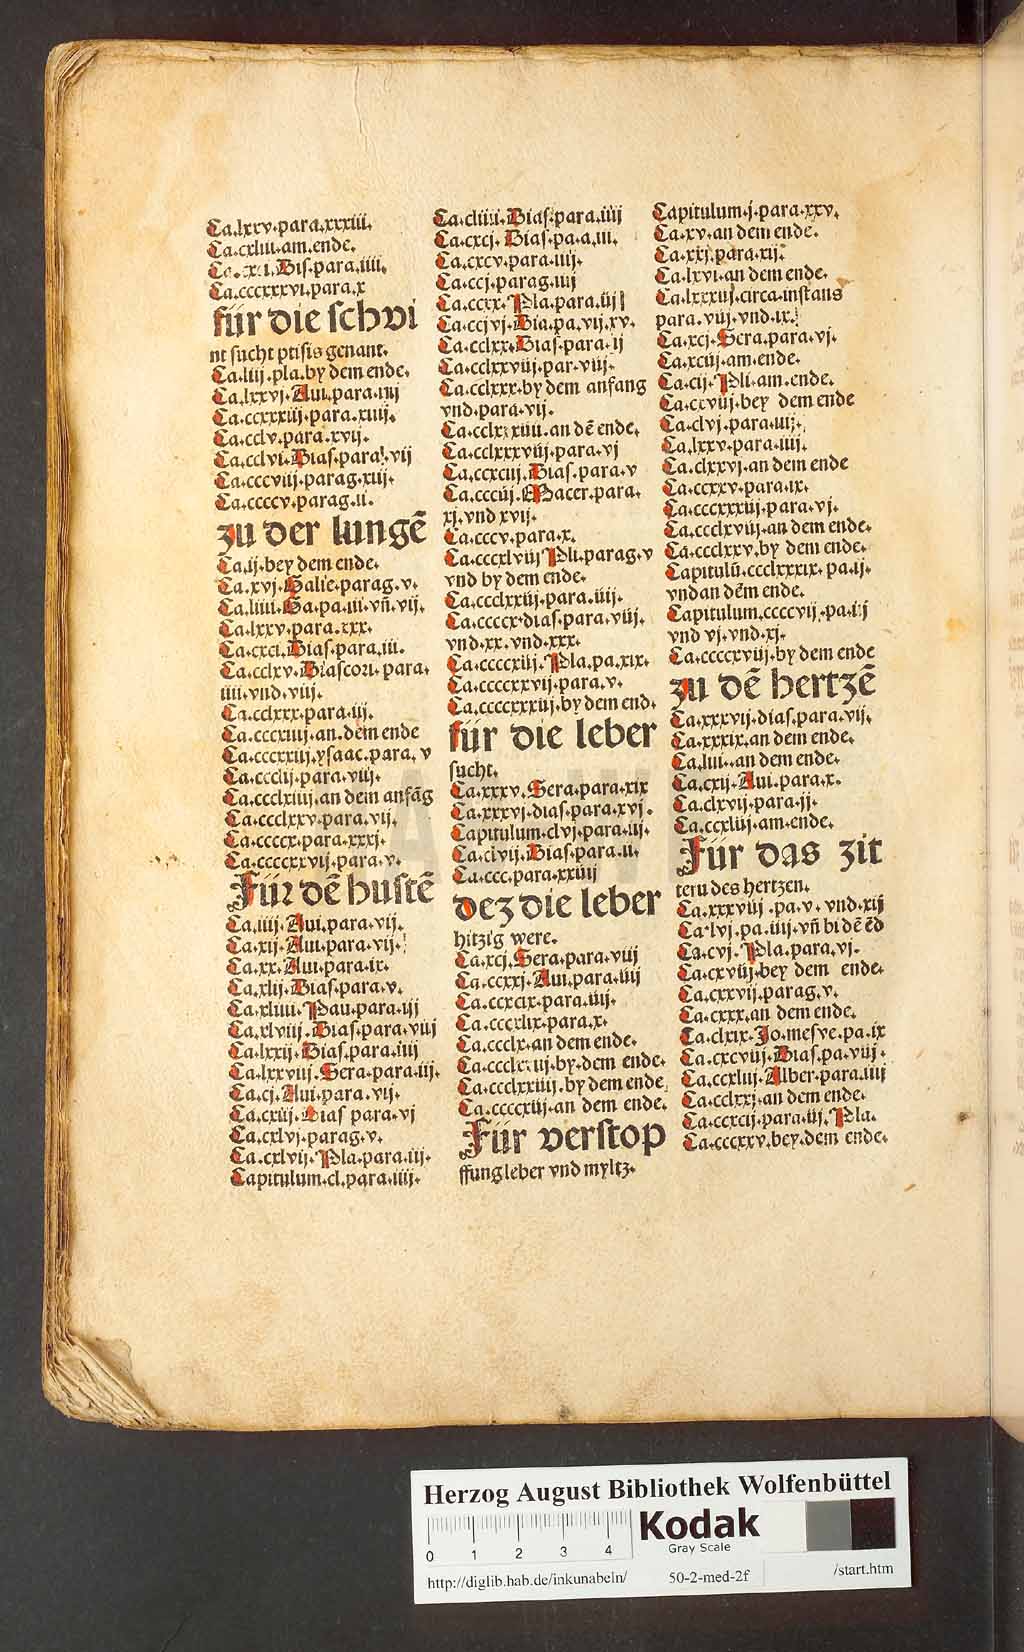 Ca.lxxv.para.xxxiii.
Ca.cxliii.am.ende.
Dis.para.iiii.
Ca.cccxxxvi.para.x
für die schvi
nt sucht ptisis genant.
Ca.liij.pla.by dem ende.
Ca.lxxvj.Aui.para.iiij
Ca.ccxxxiij.para.xiiij.
Ca.cclv.para.xvij.
Ca.cclvi.Dias.para.vij
Ca.cccviij.parag.xiij.
Ca.ccccv.parag.ii.
zu der lungē
Ca.ij.bey dem ende.
Ca.xvj.Galie.parag.v.
Ca.liiii.Ga.pa.iii.vñ.vij.
Ca.lxxv.para.xxx.
Ca.cxci.Dias.para.iii.
Ca.cclxv.Diascori.para.
iiii.vnd.viij.
Ca.cclxxx.para.iij.
Ca.cccxiiij.an.dem ende
Ca.cccxxiij.ysaac.para.v
Ca.ccclij.para.viij.
Ca.ccclxiiij.an dem anfāg
Ca.ccclxxv.para.vij.
Ca.ccccx.para.xxxj.
Ca.ccccxxvij.para.v.
Für dē hustē
Ca.iiij.Aui.para.vij.
Ca.xij.Aui.para.vij.
Ca.xx.Aui.para.ix.
Ca.xlij.Dias.para.v.
Ca.xliiii.Pau.para.iij
Ca.xlviij.Dias.para.viij
Ca.lxxij.Dias.para.iiij
Ca.lxxviij.Sera.para.iij.
Ca.cj.Aui.para.vij.
Ca.cxiij.Dias para.vj
Ca.cxlvj.parag.v.
Ca.cxlvij.Pla.para.iij.
Capitulum.cl.para.iiij.
Ca.cliiii.Dias.para.iiij
Ca.cxcj.Dias.pa.a.iii.
Ca.cxcv.para.iiij.
Ca.ccj.parag.iiij
Ca.ccxx.Pla.para.iij
Ca.ccjvj.Dia.pa.vij.xv.
Ca.cclxx.Dias.para.ij
Ca.cclxxviij.par.viij.
Ca.cclxxx.by dem anfang
vnd.para.vij.
an dē ende.
Ca.cclxxxviij.para.vj
Ca.ccxciij.Dias.para.v
Ca.ccciij.Macer.para.
xj.vnd xvij.
Ca.cccv.para.x.
Ca.cccxlviij Pli.parag.v
vnd by dem ende.
Ca.ccclxxiij.para.iiij.
Ca.ccccx.dias.para.viij.
vnd.xx.vnd.xxx.
Ca.ccccxiij.Pla.pa.xix.
Ca.ccccxxvij.para.v.
Ca.ccccxxxiij.by dem end.
für die leber
sucht.
Ca.xxxv.Sera.para.xix
Ca.xxxvj.dias.para.xvj.
Capitulum.clvj.para.iij.
Ca.clvij.Dias.para.ii.
Ca.ccc.para.xxiiij
dez die leber
hitzig were.
Ca.xcj.Sera.para.viij
Ca.ccxxj.Aui.para.iiij
Ca.ccxcix.para.iiij.
Ca.cccxlix.para.x.
Ca.ccclx.an dem ende.
by.dem ende.
Ca.ccclxxiiij.by dem ende
Ca.ccccxiij.an dem ende.
Für verstop
ffung leber vnd myltz.
Capitulum.j.para.xxv.
Ca.xv.an dem ende.
Ca.xxj.para.xij.
Ca.lxvi.an dem ende.
Ca.lxxxiij.circa.instans
para.viij.vnd.ix.
Ca.xcj.Sera.para.vj.
Ca.xciij.am.ende.
Ca.cij.Pli.am.ende.
Ca.cxviij.bey dem ende
Ca.clvj.para.iiij.
Ca.lxxv.para.iiij.
Ca.clxxvj.an dem ende
Ca.ccxxv.para.ix.
Ca.cccxxxiij.para.vj.
Ca.ccclxviij.an dem ende.
Ca.ccclxxv.by dem ende.
Capitulū.ccclxxxix.pa.ij.
vndan dem ende.
Capitulum.ccccvij.pa.iij
vnd vj.vnd.xj.
Ca.ccccxviij.by dem ende
zu dē hertzē
Ca.xxxvij.dias.para.vij.
Ca.xxxix.an dem ende.
Ca.lui.an dem ende.
Ca.cxij.Aui.para.x.
Ca.clxvij.para.ij.
Ca.ccxliij.am.ende.
Für das zit
tern des hertzen.
Ca.xxxviij.pa.v.vnd.xij
Ca.lvj.pa.iiij.vñ bi dē ēd
Ca.cvj.Pla.para.vj.
Ca.cxviij.bey dem ende.
Ca.cxxvij.parag.v.
Ca.cxxx.an dem ende.
Ca.clxix.Jo.mesve.pa.ix
Ca.cxcviij.Dias.pa.viij.
Ca.ccxliij.Alber.para.iiij
Ca.cclxxj.an dem ende.
Ca.ccxcij.para.iij.Pla.
Ca.cccxxv.bey.dem ende.
Herzog August Bibliothek Wolfenbüttel
0 1 2 3 4
Kodak
Gray Scale
http://diglib.hab.de/inkunabeln/ 50-2-med-2f /start.htm